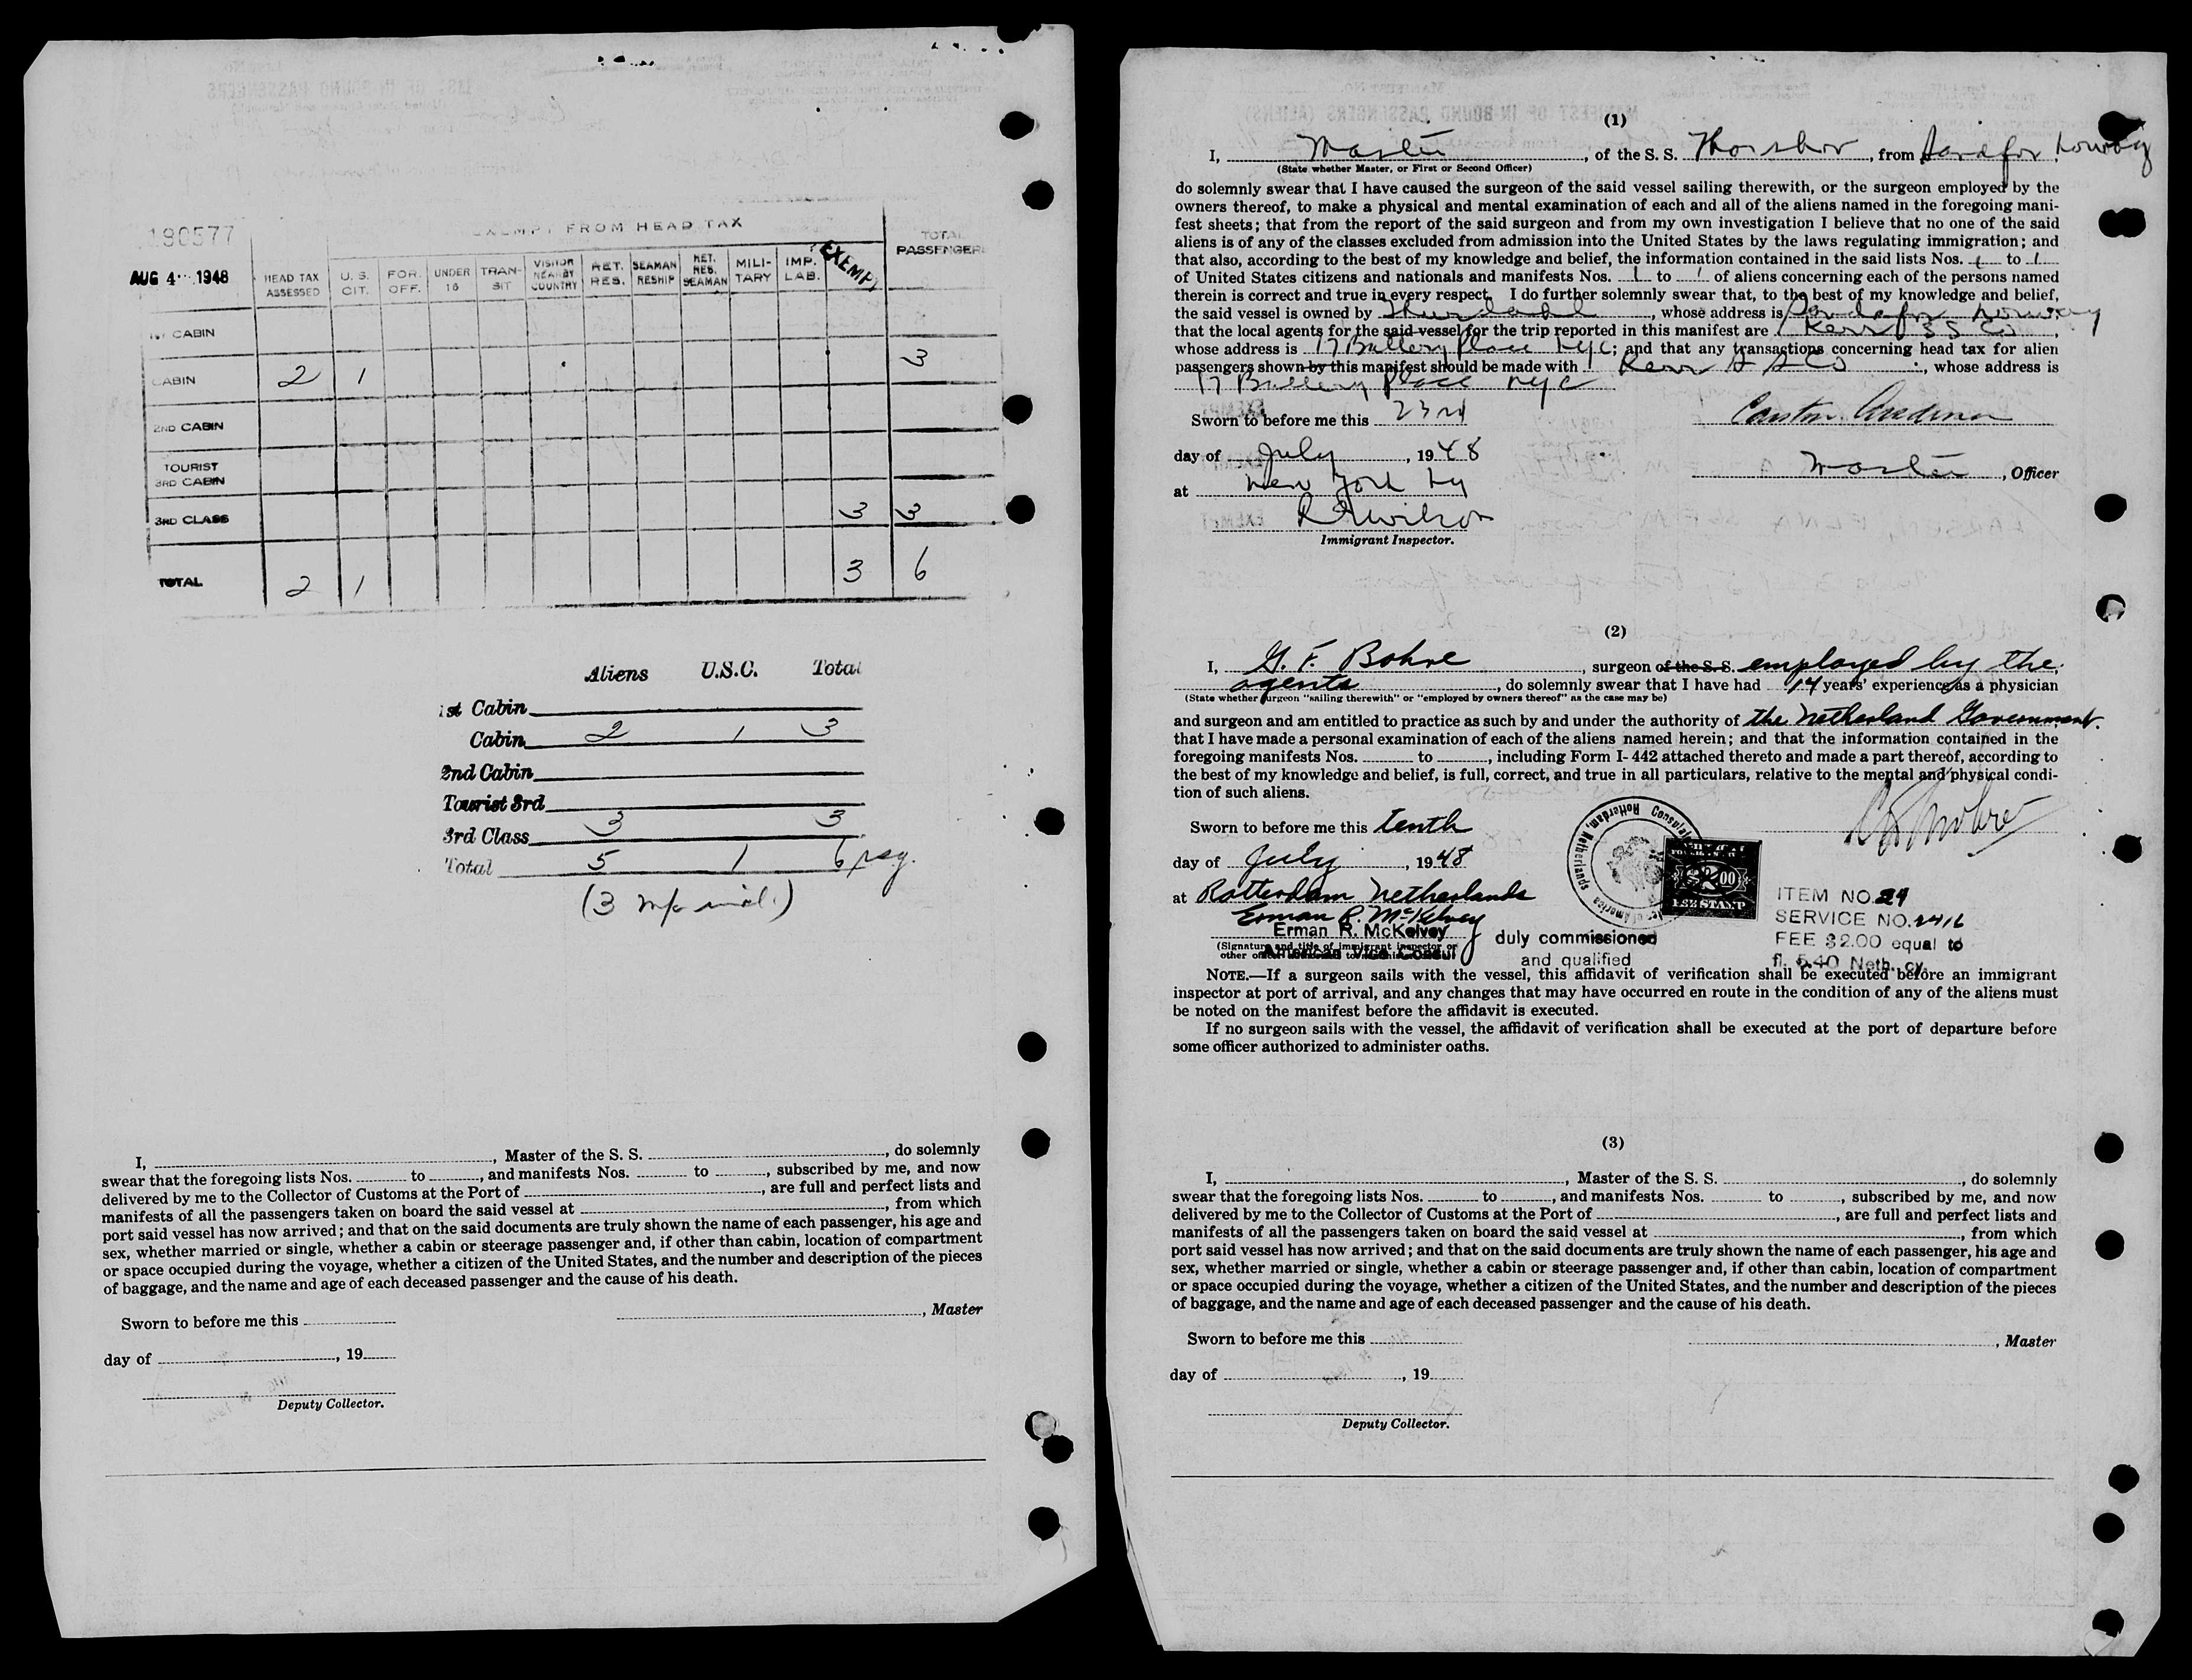 190577
AUG 4 1948
EXEMPT FROM HEAD TAX
HEAD TAX ASSESSED
U. S. CIT.
FOR. OFF.
UNDER 16
TRAN- SIT
VISITOR NEARBY COUNTRY
RET. RES.
SEAMAN RESHIP
RET. RES. SEAMAN
MILI- TARY
IMP. LAB.
EXEMPT
TOTAL PASSENGERS
1ST CABIN
CABIN 2 1 3
2ND CABIN
TOURIST
3RD CABIN
3RD CLASS 3 3
TOTAL 2 1 3 6
Aliens U.S.C. Total
1st Cabin
Cabin 2 1 3
2nd Cabin
Tourist 3rd
3rd Class 3 3
Total 5 1 6
I, , Master of the S. S. , do solemnly
swear that the foregoing lists Nos. to , and manifests Nos. to , subscribed by me, and now
delivered by me to the Collector of Customs at the Port of , are full and perfect lists and
manifests of all the passengers taken on board the said vessel at , from which
port said vessel has now arrived; and that on the said documents are truly shown the name of each passenger, his age and
sex, whether married or single, whether a cabin or steerage passenger and, if other than cabin, location of compartment
or space occupied during the voyage, whether a citizen of the United States, and the number and description of the pieces
of baggage, and the name and age of each deceased passenger and the cause of his death.
, Master
Sworn to before me this
day of , 19
Deputy Collector.
(1)
I, Master , of the S. S. Thorshov , from Norway
(State whether Master, or First or Second Officer)
do solemnly swear that I have caused the surgeon of the said vessel sailing therewith, or the surgeon employed by the
owners thereof, to make a physical and mental examination of each and all of the aliens named in the foregoing mani-
fest sheets; that from the report of the said surgeon and from my own investigation I believe that no one of the said
aliens is of any of the classes excluded from admission into the United States by the laws regulating immigration; and
that also, according to the best of my knowledge and belief, the information contained in the said lists Nos. 1 to 1
of United States citizens and nationals and manifests Nos. 1 to 1 of aliens concerning each of the persons named
therein is correct and true in every respect. I do further solemnly swear that, to the best of my knowledge and belief,
the said vessel is owned by , whose address is Norway
that the local agents for the said vessel for the trip reported in this manifest are Kerr SS Co ,
whose address is 17 Battery Place NYC; and that any transactions concerning head tax for alien
passengers shown by this manifest should be made with Kerr S S Co , whose address is
17 Battery Place NYC
Sworn to before me this 23rd
day of July , 19 48
Master , Officer
at New York NY
Wilson
Immigrant Inspector.
(2)
I, G. F. Bohre , surgeon of the S. S. employed by the
agents , do solemnly swear that I have had 14 years' experience as a physician
(State whether surgeon "sailing therewith" or "employed by owners thereof" as the case may be)
and surgeon and am entitled to practice as such by and under the authority of the Netherland Government.
that I have made a personal examination of each of the aliens named herein; and that the information contained in the
foregoing manifests Nos. to , including Form I-442 attached thereto and made a part thereof, according to
the best of my knowledge and belief, is full, correct, and true in all particulars, relative to the mental and physical condi-
tion of such aliens.
Sworn to before me this tenth
day of July , 19 48
at Rotterdam Netherlands
Erman R. McKelvey
Erman R. McKelvey
American Vice Consul
(Signature and title of immigrant inspector or
duly commissioned
and qualified
Rotterdam, Netherlands
$2.00
FEE STAMP
ITEM NO. 24
SERVICE NO. 2416
FEE $2.00 equal to
fl. 5.40 Neth. cy.
NOTE.—If a surgeon sails with the vessel, this affidavit of verification shall be executed before an immigrant
inspector at port of arrival, and any changes that may have occurred en route in the condition of any of the aliens must
be noted on the manifest before the affidavit is executed.
If no surgeon sails with the vessel, the affidavit of verification shall be executed at the port of departure before
some officer authorized to administer oaths.
(3)
I, , Master of the S. S. , do solemnly
swear that the foregoing lists Nos. to , and manifests Nos. to , subscribed by me, and now
delivered by me to the Collector of Customs at the Port of , are full and perfect lists and
manifests of all the passengers taken on board the said vessel at , from which
port said vessel has now arrived; and that on the said documents are truly shown the name of each passenger, his age and
sex, whether married or single, whether a cabin or steerage passenger and, if other than cabin, location of compartment
or space occupied during the voyage, whether a citizen of the United States, and the number and description of the pieces
of baggage, and the name and age of each deceased passenger and the cause of his death.
Sworn to before me this
, Master
day of , 19
Deputy Collector.